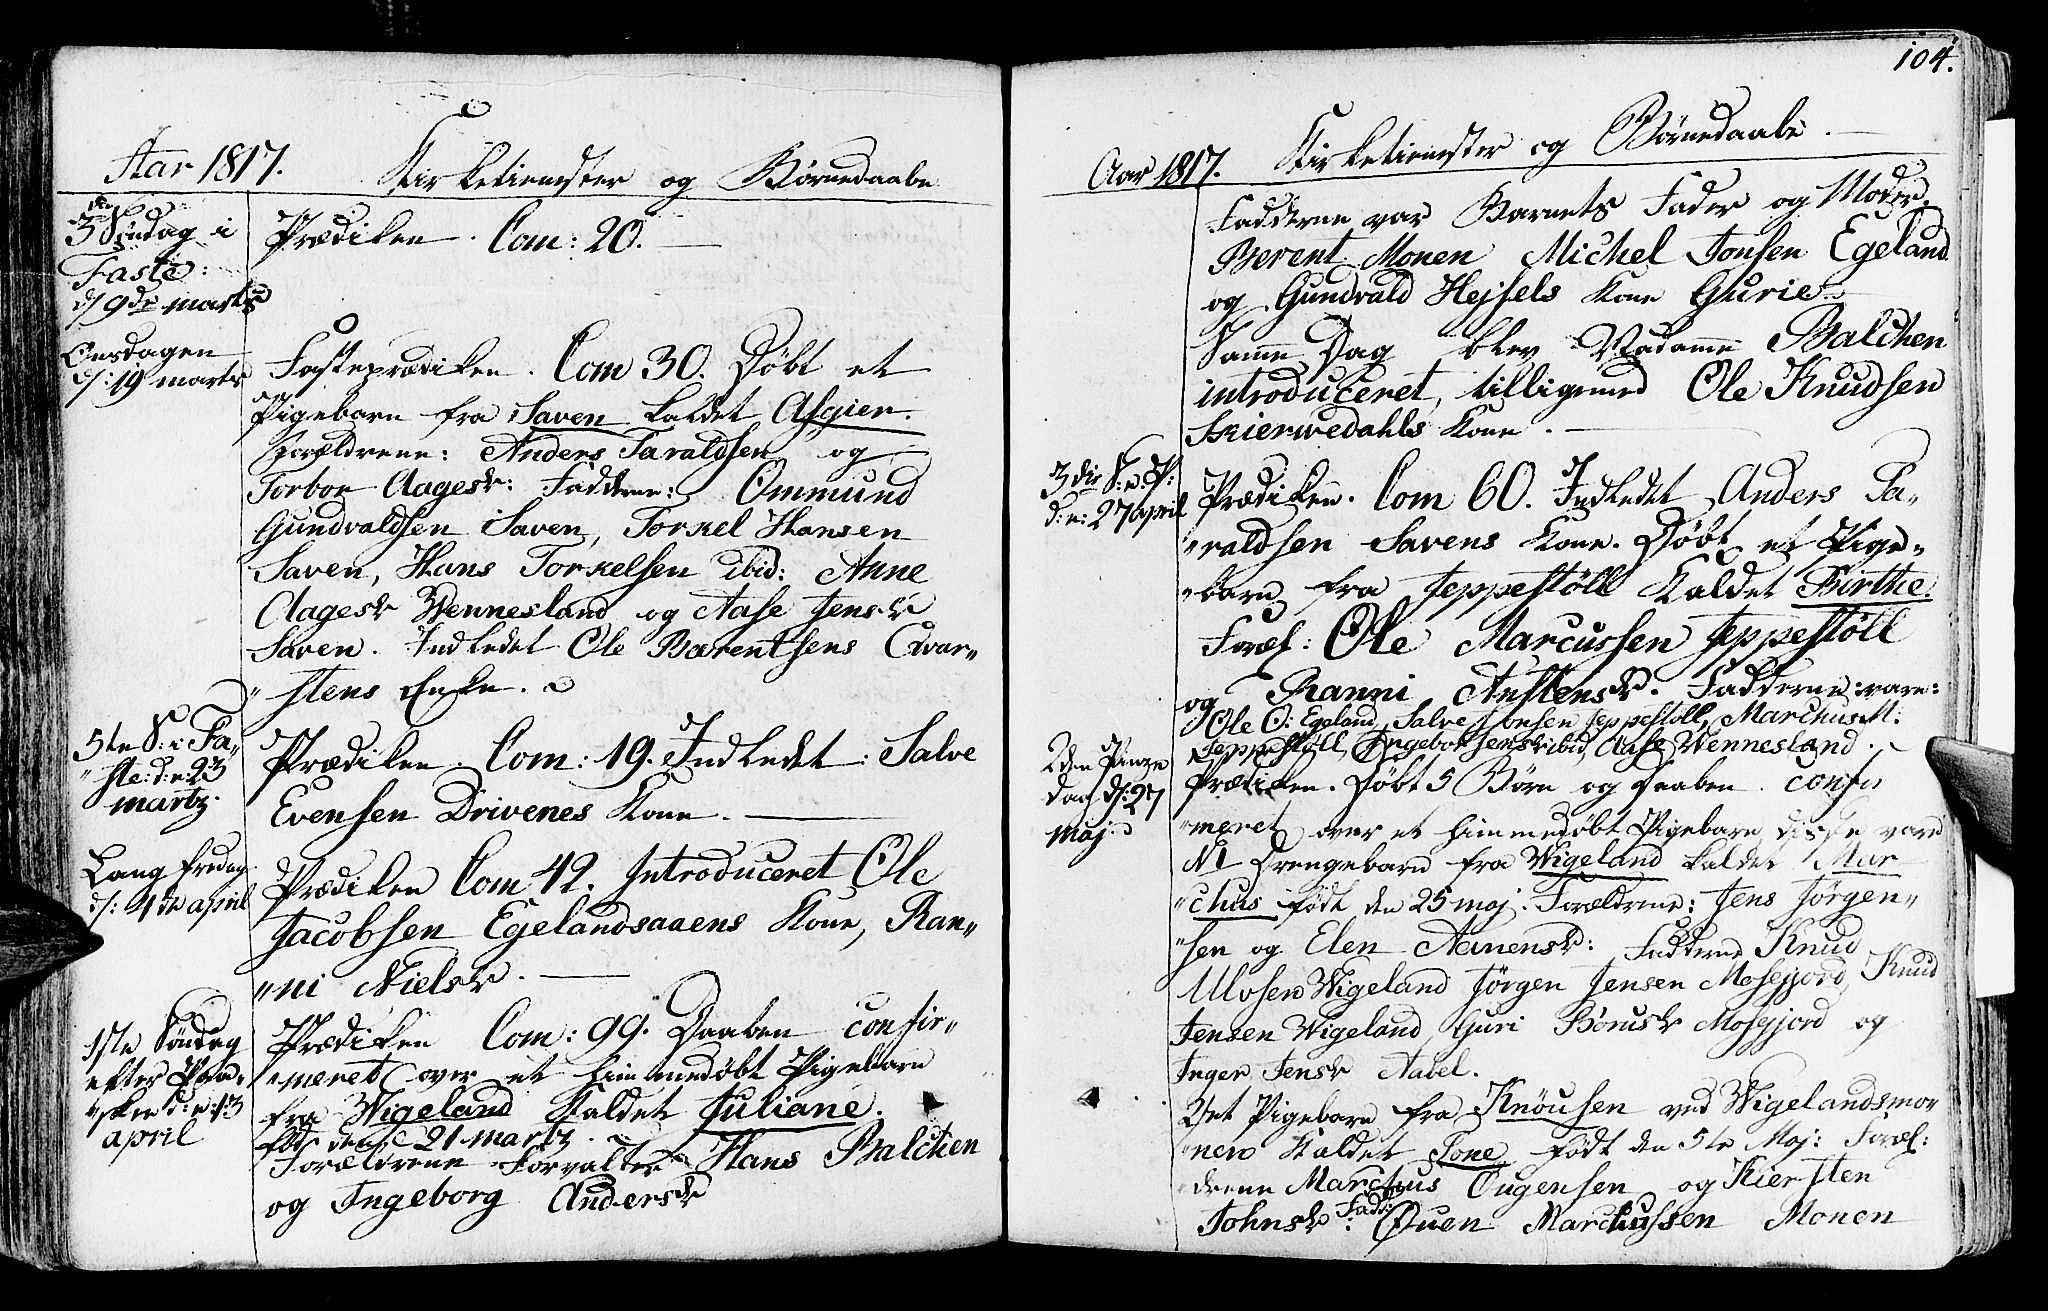 Aar 1817. Kirketienester og Børnedaabe
3die Søndag i
Faste:
d/ 9de marts
Prædiken. Com: 20.
Onsdagen
d/: 19 marts
Fasteprædiken. Com 30. Døbt et
Pigebarn fra Saven kaldet Asgier.
Forældrene: Anders Taraldsen og
Torbor Aagesdr: Fadderne: Ommund
Gundvaldsen Saven, Torkel Hansen
Saven, Hans Torkelsen ibid: Anne
Aagesdr Wennesland og Aase Jensdr
Saven. Indledet Ole Bærentsens Qvar-
"stens Enke.
5te S: i Fa-
"ste: d: 23
martz.
Prædiken. Com: 19. Indledet: Salve
Evensen Drivenes Kone.
Lang fredag
d/: 4de april
Prædiken Com 42. Introduceret Ole
Jacobsen Egelandsaaens Kone, Ran-
"ni Nielsdr.
1ste Søndag
efter Paa-
"ske d: 13
april
Prædiken Com: 99. Daaben confir-
"meret over et himmedøbt Pigebarn
fra Wigeland Kaldet Juliane.
født den 21 martz.
Forældrene Forvalter Hans Balchen
og Ingeborg Andersdr
104.
Aar 1817. Kirketienester og Børnedaabe.
Fadderne var Barnets Fader og Moder.
Berent Monen Michel Jonsen Egeland
og Gundvald Hejsels Kone Gurie.
Samme Dag blev Madamme Balchen
introduceret, tilligemed Ole Knudsen
Skierwedahls Kone.
3die S: e: P:
d: 27 april
Prædiken. Com 60. Indledet Anders Ta-
"raldsen Savens Kone. Døbt et Pige-
"barn fra Jeppestøll Kaldet Birthe.
Foræl: Ole Marcussen Jeppestøll
og Ranni Austensdr. Fadderne: vare:
Ole O: Egeland, Salve Jonsen Jeppestøll, Marchus M:
Jeppestøll, Ingebor Jensdr ibid, Aase Wennesland.
2den Pinze
dag d/: 27
maj.
Prædiken. Døbt 5 Børn og Daaben confir
"meret over et himmedøbt Pigebarn disse vare
N1 Drengebarn fra Wigeland kaldet Mar
"chus født den 25 maj. Forældrene: Jens Jørgen-
"sen og Elen Aanensdr: Fadderne Knud
Ulvsen Wigeland Jørgen Jensen Mosefjord, Knud
Jensen Wigeland, Guri Børusdr Mosefjord og
Inger Jensdr Aabel.
2det Pigebarn fra Knøusen ved Wigelandsmo-
"nen Kaldet Tone, født den 5te Maj: Foræl:
"drene Marchus Ougensen og Kiersten
Johnsdr: Fadd: Ouen Marchussen Monen